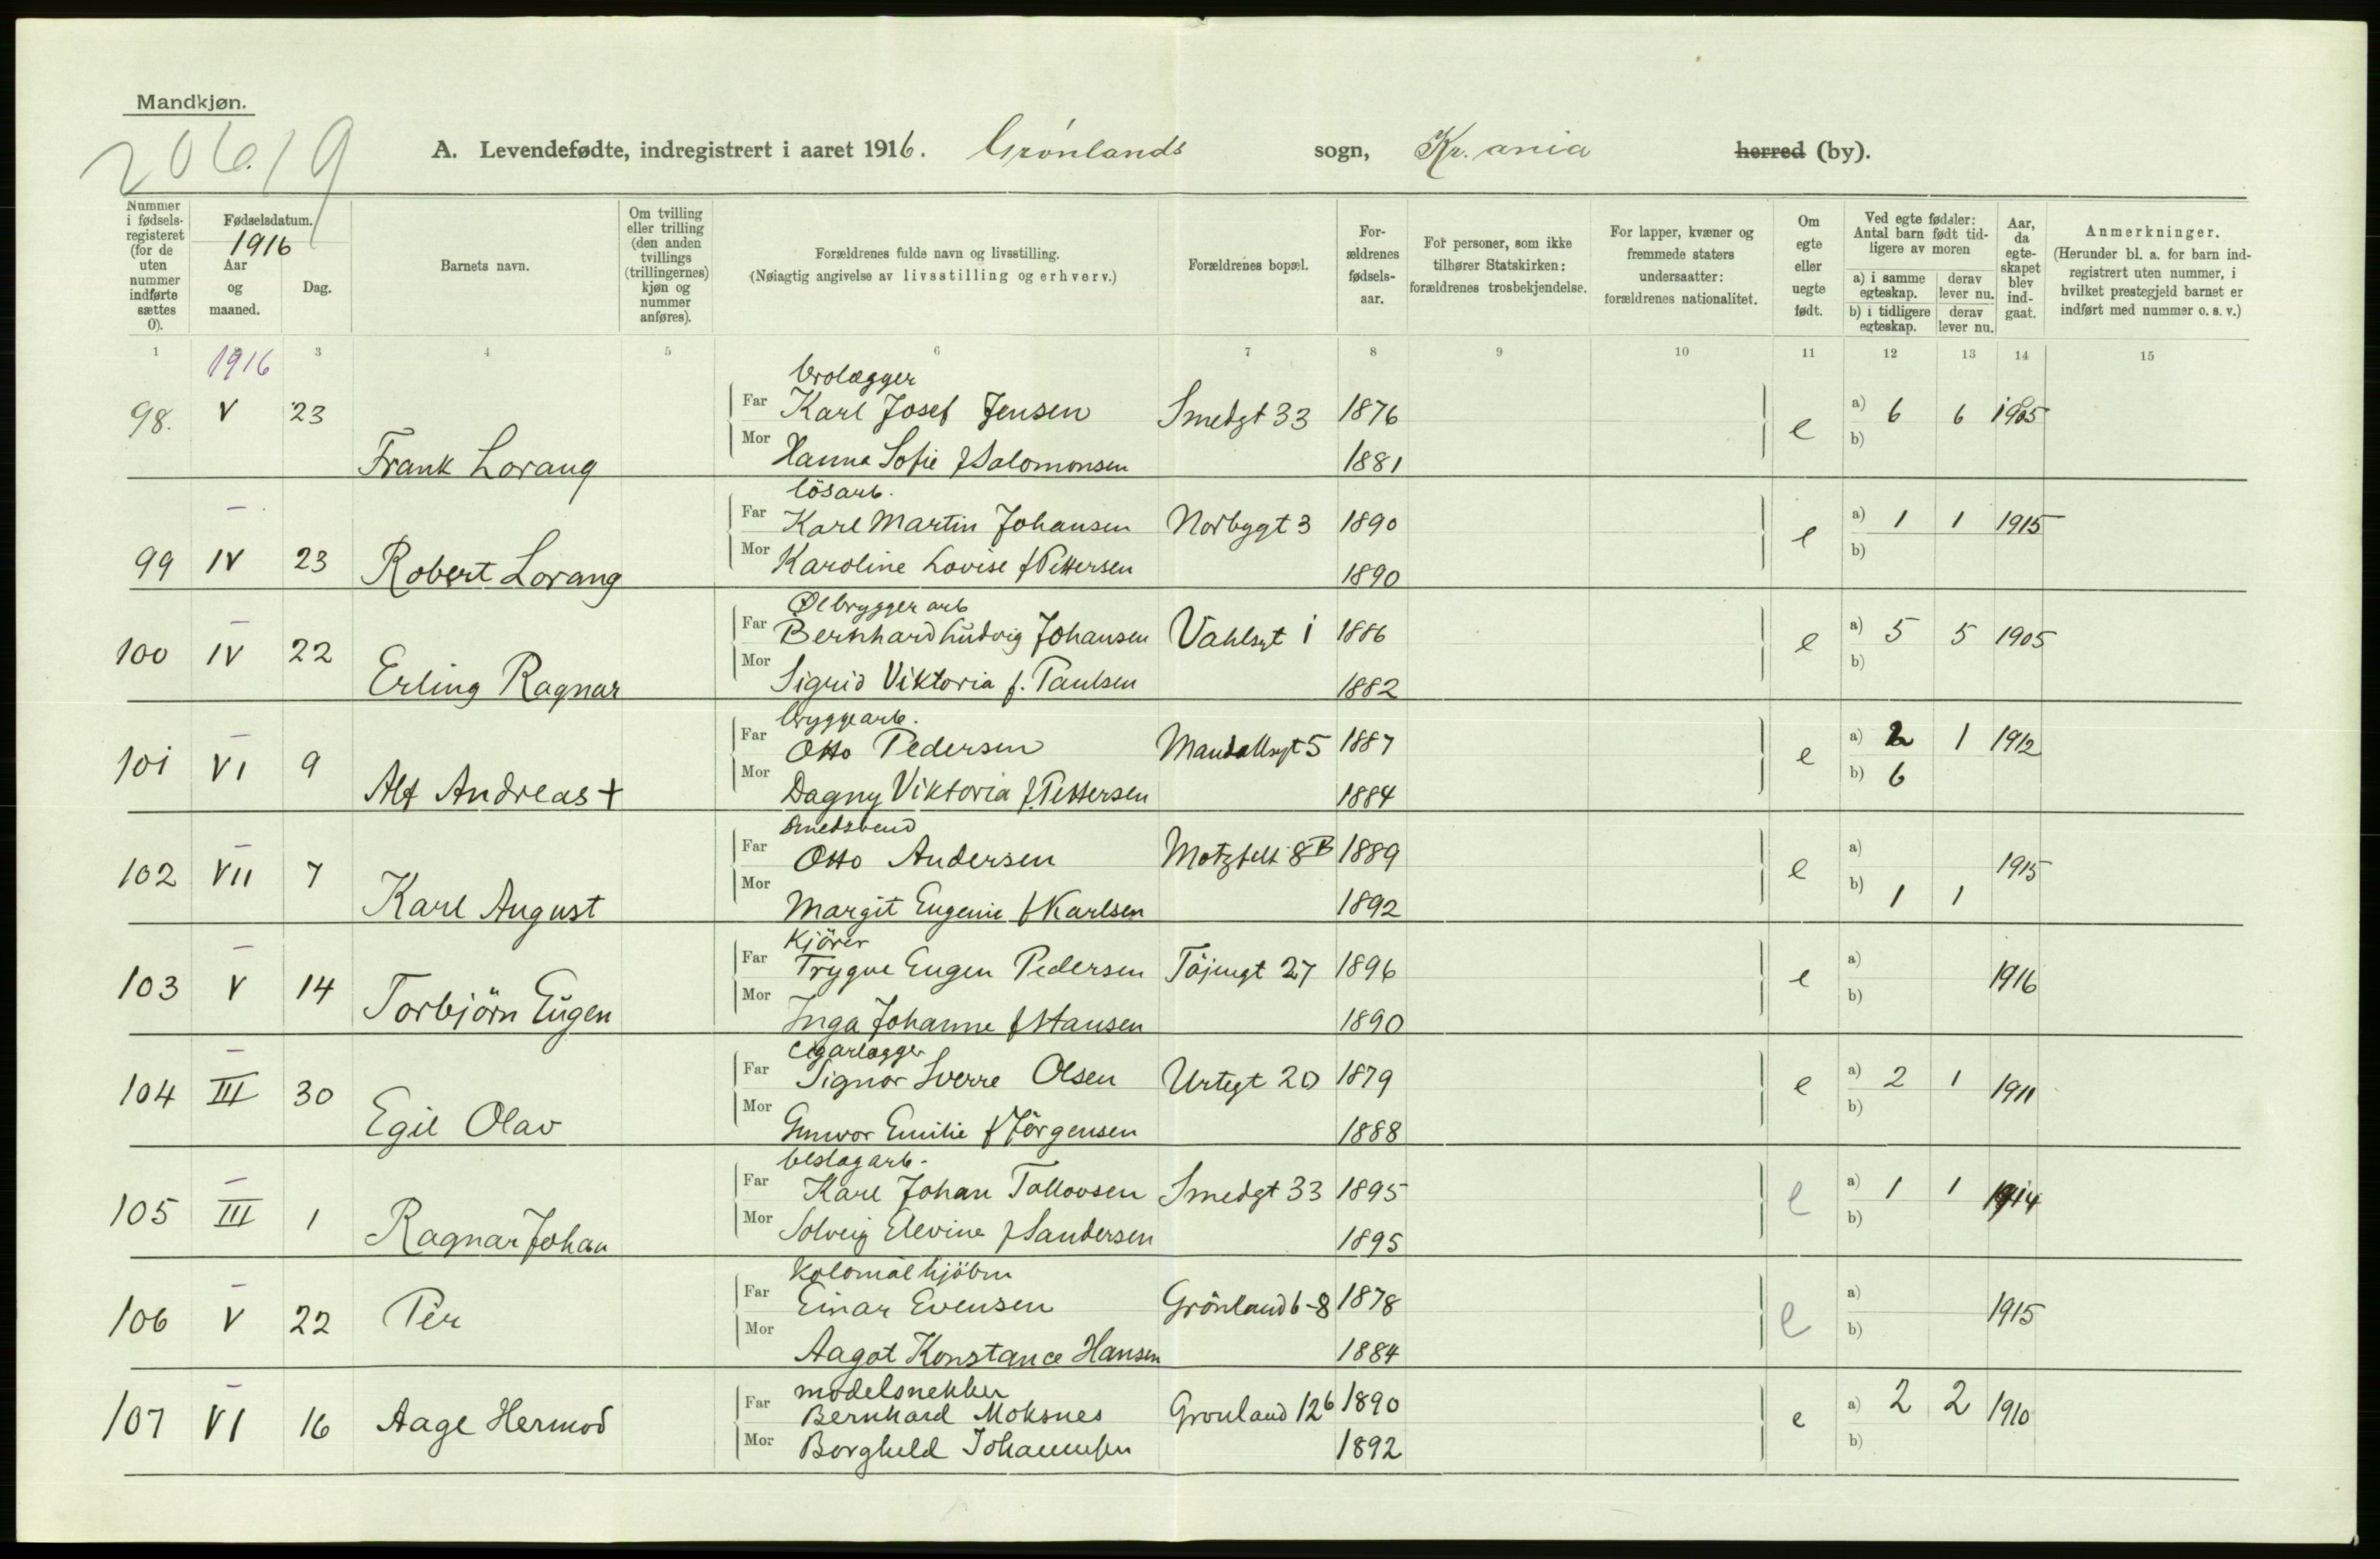 Mandkjøn.
206.19
A. Levendefødte, indregistrert i aaret 1916. Grønlands sogn, Kr.ania herred (by).
Nummer i fødsels-registeret (for de uten nummer indførte sættes 0).
Fødselsdatum. 1916
Aar og maaned.
Dag.
Barnets navn.
Om tvilling eller trilling (den anden tvillings (trillingernes) kjøn og nummer anføres).
Forældrenes fulde navn og livsstilling.
(Nøiagtig angivelse av livsstilling og erhverv.)
Forældrenes bopæl.
For-ældrenes fødsels-aar.
For personer, som ikke tilhører Statskirken: forældrenes trosbekjendelse.
For lapper, kvæner og fremmede staters undersaatter: forældrenes nationalitet.
Om egte eller uegte født.
Ved egte fødsler: Antal barn født tid-ligere av moren
a) i samme egteskap. derav lever nu.
b) i tidligere egteskap. derav lever nu.
Aar, da egte-skapet blev ind-gaat.
Anmerkninger.
(Herunder bl. a. for barn ind-registrert uten nummer, i hvilket prestegjeld barnet er indført med nummer o. s. v.)
1 3 4 5 6 7 8 9 10 11 12 13 14 15
1916
brolægger
98. V 23 Far Karl Josef Jensen Smedgt 33 1876 e a) 6 6 1905
Frank Lorang Mor Hanna Sofie f Salomonsen 1881 b)
løsarb.
– Far Karl Martin Johansen Norbygt 3 1890 e a) 1 1 1915
99 IV 23 Robert Lorang Mor Karoline Lovise f Pettersen 1890 b)
Ølbryggerarb
– Far Bernhard Ludvig Johansen Vahlsgt 1 1886 a) 5 5 1905
100 IV 22 Erling Ragnar Mor Sigrid Viktoria f. Paulsen 1882 e b)
bryggearb.
– Far Otto Pedersen Mandallsgt 5 1887 a) 2 1 1912
101 VI 9 Alf Andreas + Mor Dagny Viktoria f. Pettersen 1884 e b) 6
smedsvend
– Far Otto Andersen Motzfelt 8B 1889 a) 1915
102 VII 7 Karl August Mor Margit Eugenie f Karlsen 1892 e b) 1 1
Kjörer
– Far Trygve Eugen Pedersen Töjengt 27 1896 a) 1916
103 V 14 Torbjörn Eugen Mor Inga Johanne f Hansen 1890 e b)
– Far Signor Sverre Olsen Urtegt 20 1879 a) 2 1 1911
104 III 30 Egil Olav Mor Gunvor Emilie f Jörgensen 1888 e b)
beslagarb.
– Far Karl Johan Tollovsen Smedgt 33 1895 a) 1 1 1914
105 III 1 Ragnar Johan Mor Solveig Elevine f Sandersen 1895 e b)
Kolonialkjöbm
– Far Einar Evensen Grönland 6-8 1878 a) 1915
106 V 22 Per Mor Aagot Konstance Hansen 1884 e b)
modelsnekker
– Far Bernhard Moksnes Gronland 12b 1890 a) 2 2 1910
107 VI 16 Aage Hermod Mor Borghild Johannesen 1892 e b)